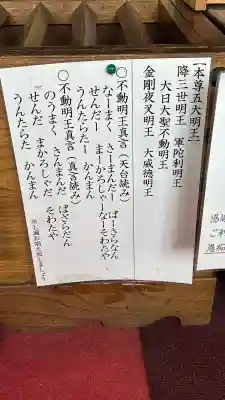 【本尊五大明王】
降三世明王　軍陀利明王
大日大聖不動明王
金剛夜叉明王　大威徳明王
○不動明王真言（天台読み）
なーまく　さーまんだー　ばーさらなん
せんだー　まーかろしゃーなーそわたや
うんたらたーかんまん
○不動明王真言（真言読み）
のうまく　さんまんだ　ばざらだん
せんだ　まかろしゃだ　そわたや
うんたらた　かんまん